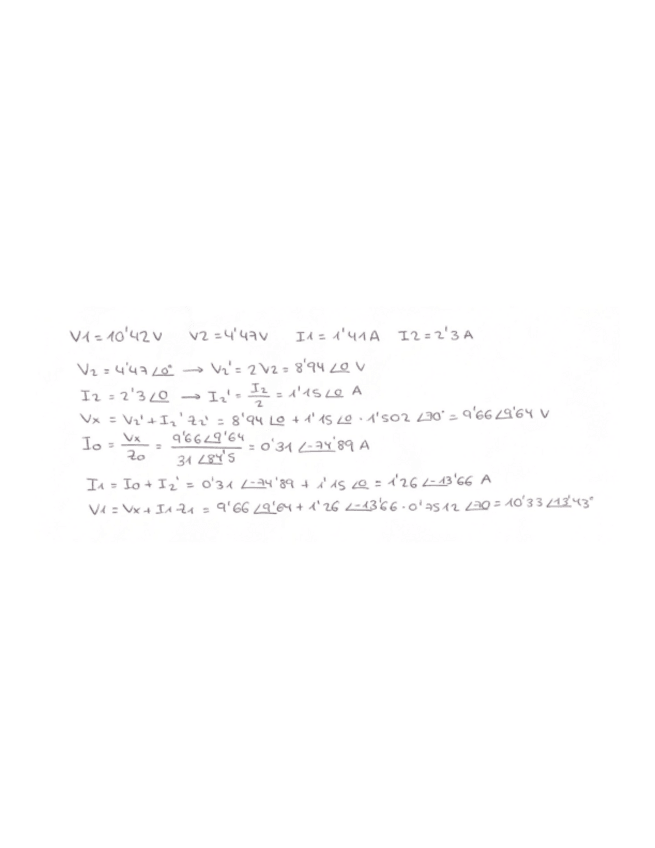 V1 = 10'42V V2 = 4'47V I1 = 1'41A I2 = 2'3A
V2 = 4'47∠0° → V2' = 2V2 = 8'94∠0 V
I2 = 2'3∠0 → I2' = I2/2 = 1'15∠0 A
Vx = V2' + I2' Z2' = 8'94∠0 + 1'15∠0 · 1'502∠70° = 9'66∠9'64 V
I0 = Vx/Z0 = 9'66∠9'64/31∠84'5 = 0'31∠-74'89 A
I1 = I0 + I2' = 0'31∠-74'89 + 1'15∠0 = 1'26∠-13'66 A
V1 = Vx + I1·Z1 = 9'66∠9'64 + 1'26∠-13'66 · 0'7512∠70 = 10'33∠13'43°